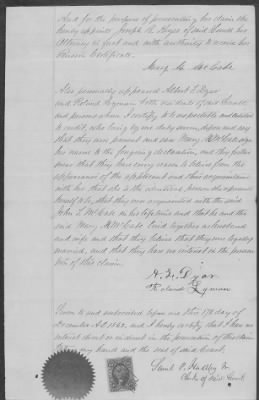 And for the purpose of prosecuting her claim she
hereby appoints Joseph R. of said Court her
Attorney in fact and with authority to receive her
Pension Certificate.
Mary M. McCabe
Also personally appeared Albert F. Dyer
and Roland Lyman both residents of said
and persons whom I certify to be respectable and entitled
to credit, who being by me duly sworn, depose and say
that they were present and saw Mary M. McCabe sign
her name to the foregoing declaration, and they further
swear that they have every reason to believe from the
appearance of the applicant and their acquaintance
with her that she is the identical person she represents
herself to be, that they were acquainted with the said
John McCabe in his life time and that he and the
said Mary M. McCabe lived together as husband
and wife and that they believe that they were legally
married, and that they have no interest in the prosecu-
tion of this claim.
Dyer
Roland Lyman
Sworn to and subscribed before me this 17th day of
December A.D. 186 and I hereby certify that I have no
interest direct or indirect in the prosecution of this claim
my hand and the seal of said Court.
Hadley Jr
Clerk of said Court